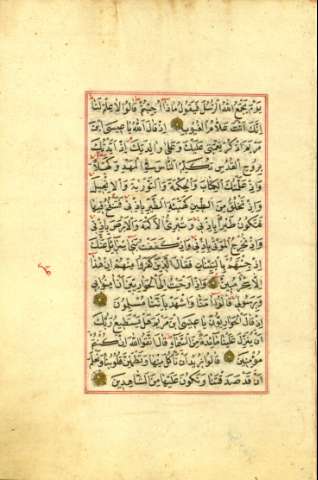 يوم يجمع الله الرسل فيقول ماذا اجبتم قالوا لا علم لنا
انك انت علام الغيوب اذ قال الله يا عيسى ابن
مريم اذكر نعمتي عليك وعلى والدتك اذ ايدتك
بروح القدس تكلم الناس في المهد وكهلا
واذ علمتك الكتاب والحكمة والتورية والانجيل
واذ تخلق من الطين كهيئة الطير باذني فتنفخ فيها
فتكون طيرا باذني وتبرئ الاكمه والابرص باذني
واذ تخرج الموتى باذني واذ كففت بني اسرائيل عنك
اذ جئتهم بالبينات فقال الذين كفروا منهم ان هذا
الا سحر مبين واذ اوحيت الى الحواريين ان امنوا بي
وبرسولي قالوا امنا واشهد باننا مسلمون
اذ قال الحواريون يا عيسى ابن مريم هل يستطيع ربك
ان ينزل علينا مائدة من السماء قال اتقوا الله ان كنتم
مؤمنين قالوا نريد ان ناكل منها وتطمئن قلوبنا ونعلم
ان قد صدقتنا ونكون عليها من الشاهدين